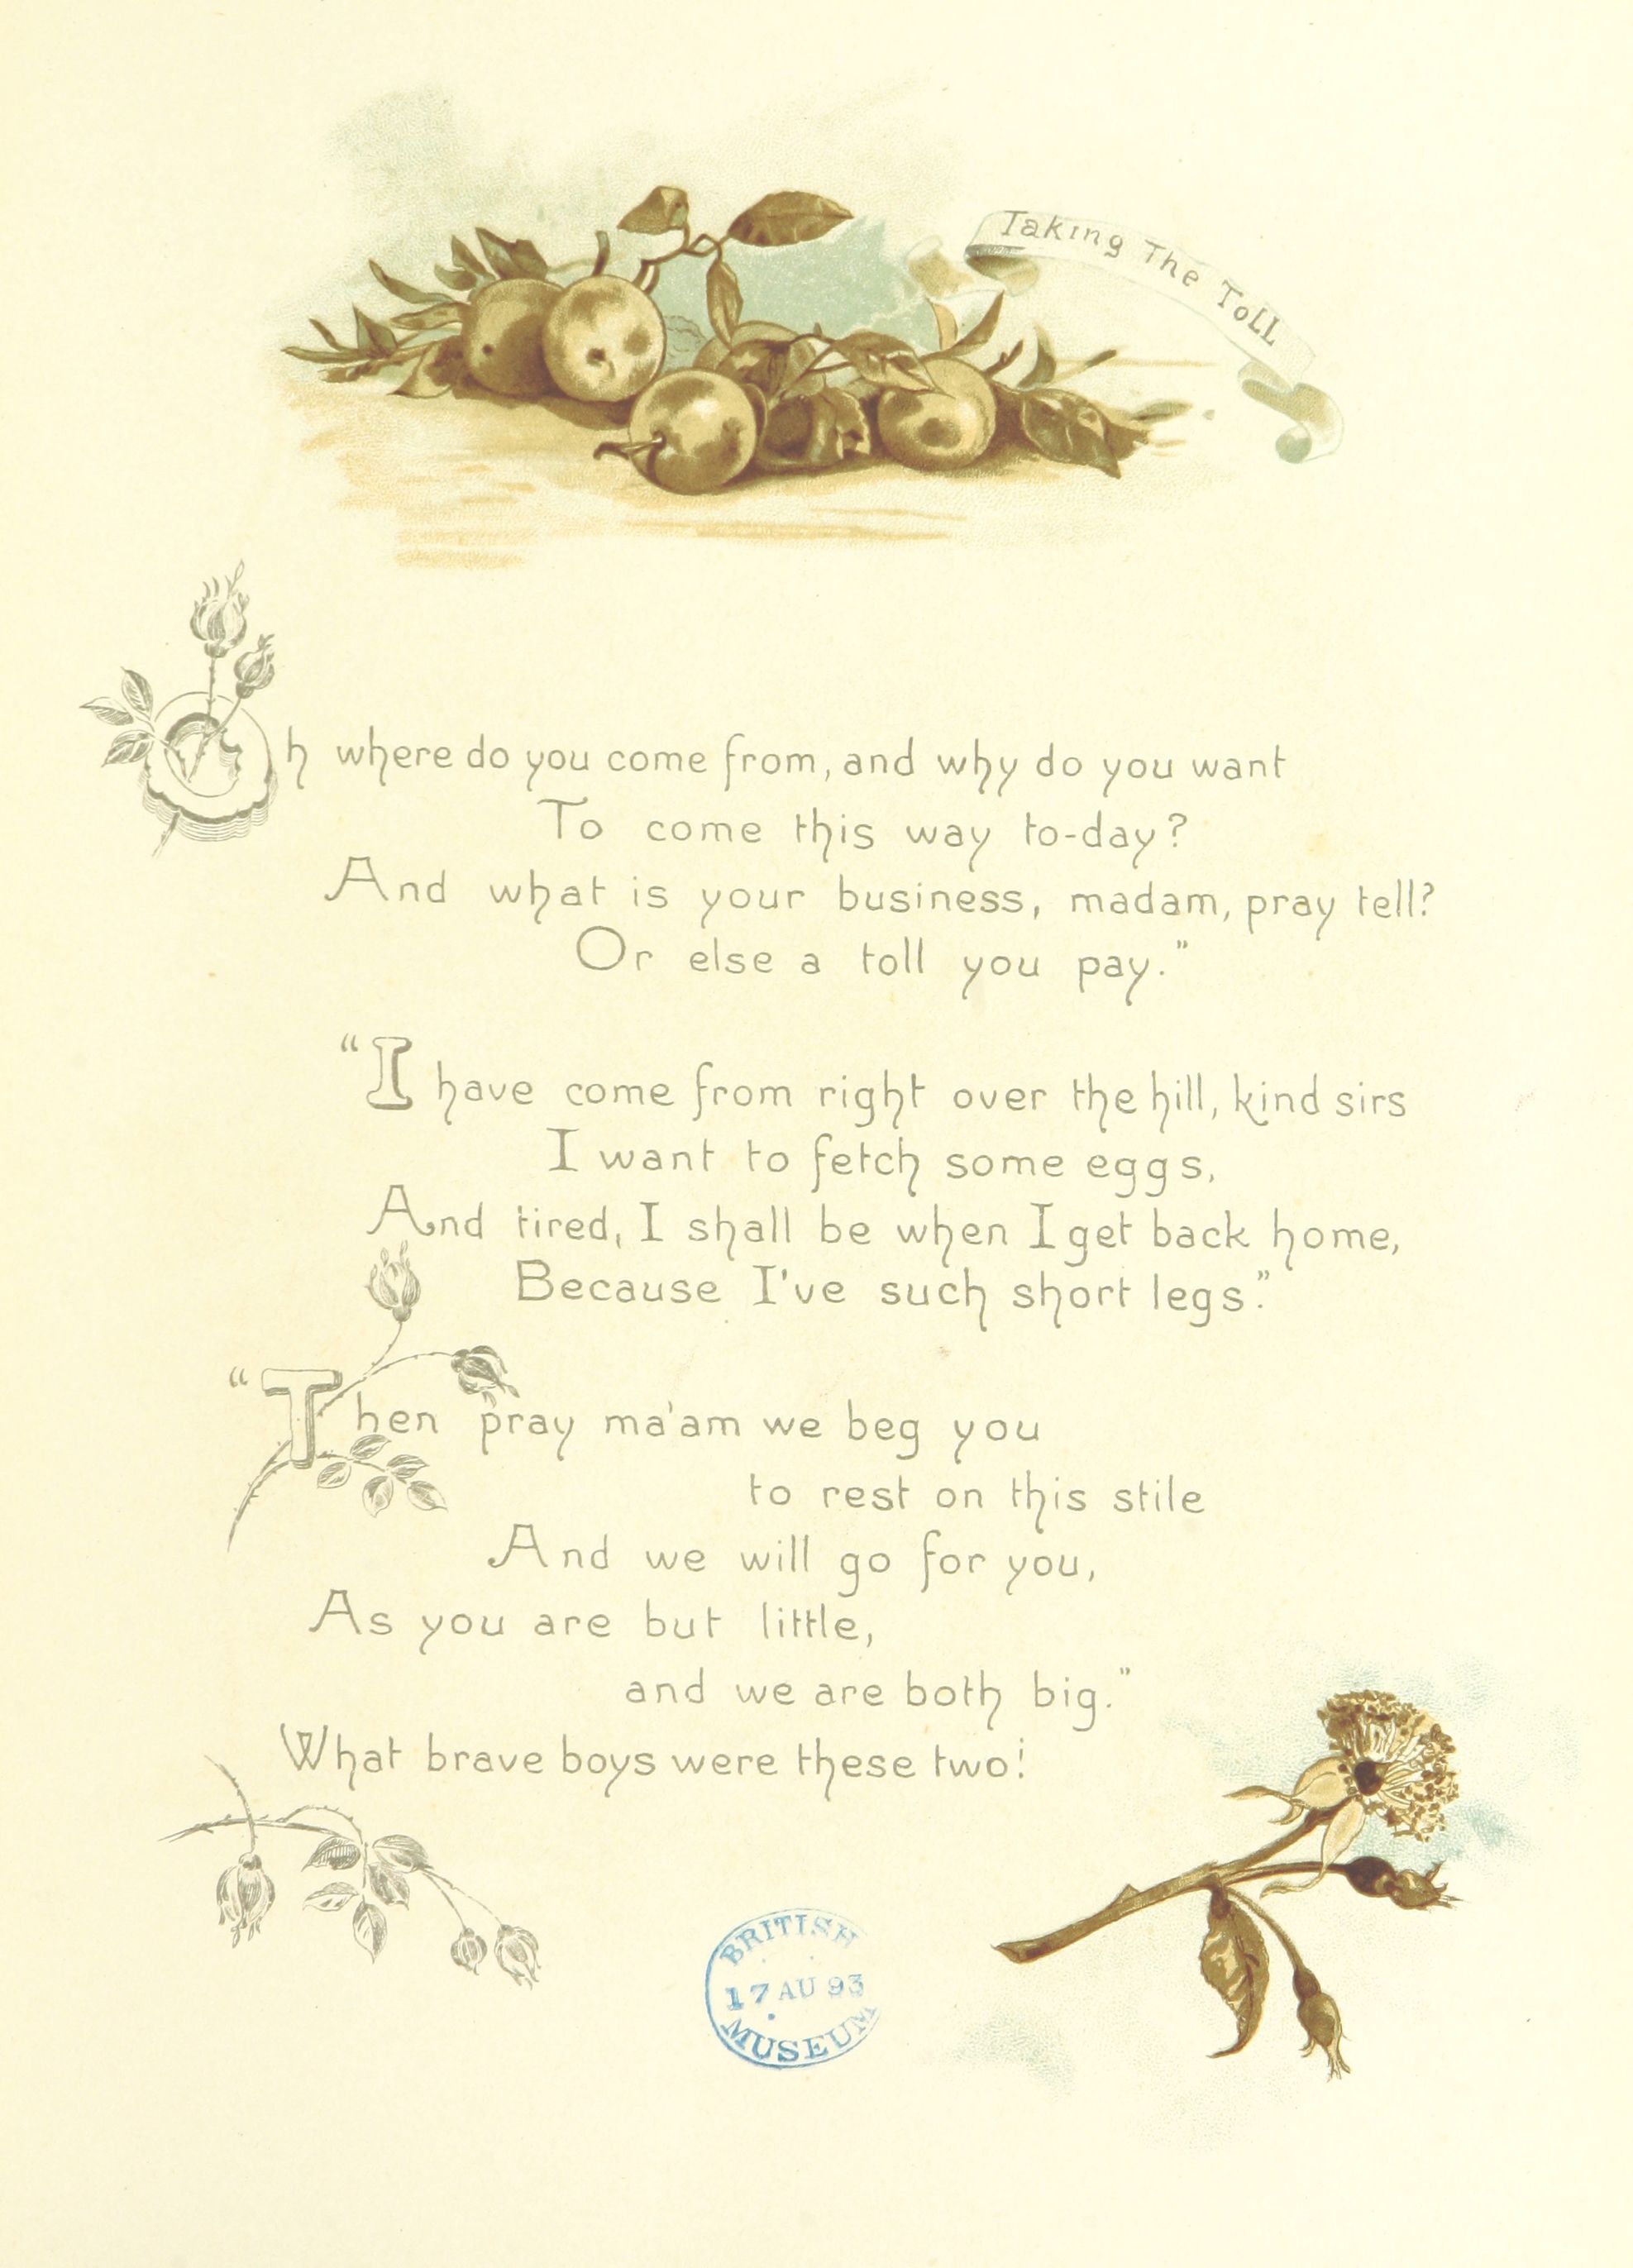 Taking The Toll
Oh where do you come from, and why do you want
To come this way to-day?
And what is your business, madam, pray tell?
Or else a toll you pay."
"I have come from right over the hill, kind sirs
I want to fetch some eggs,
And tired, I shall be when I get back home,
Because I've such short legs."
"Then pray ma'am we beg you
to rest on this stile
And we will go for you,
As you are but little,
and we are both big."
What brave boys were these two!
BRITISH
17 AU 93
MUSEUM